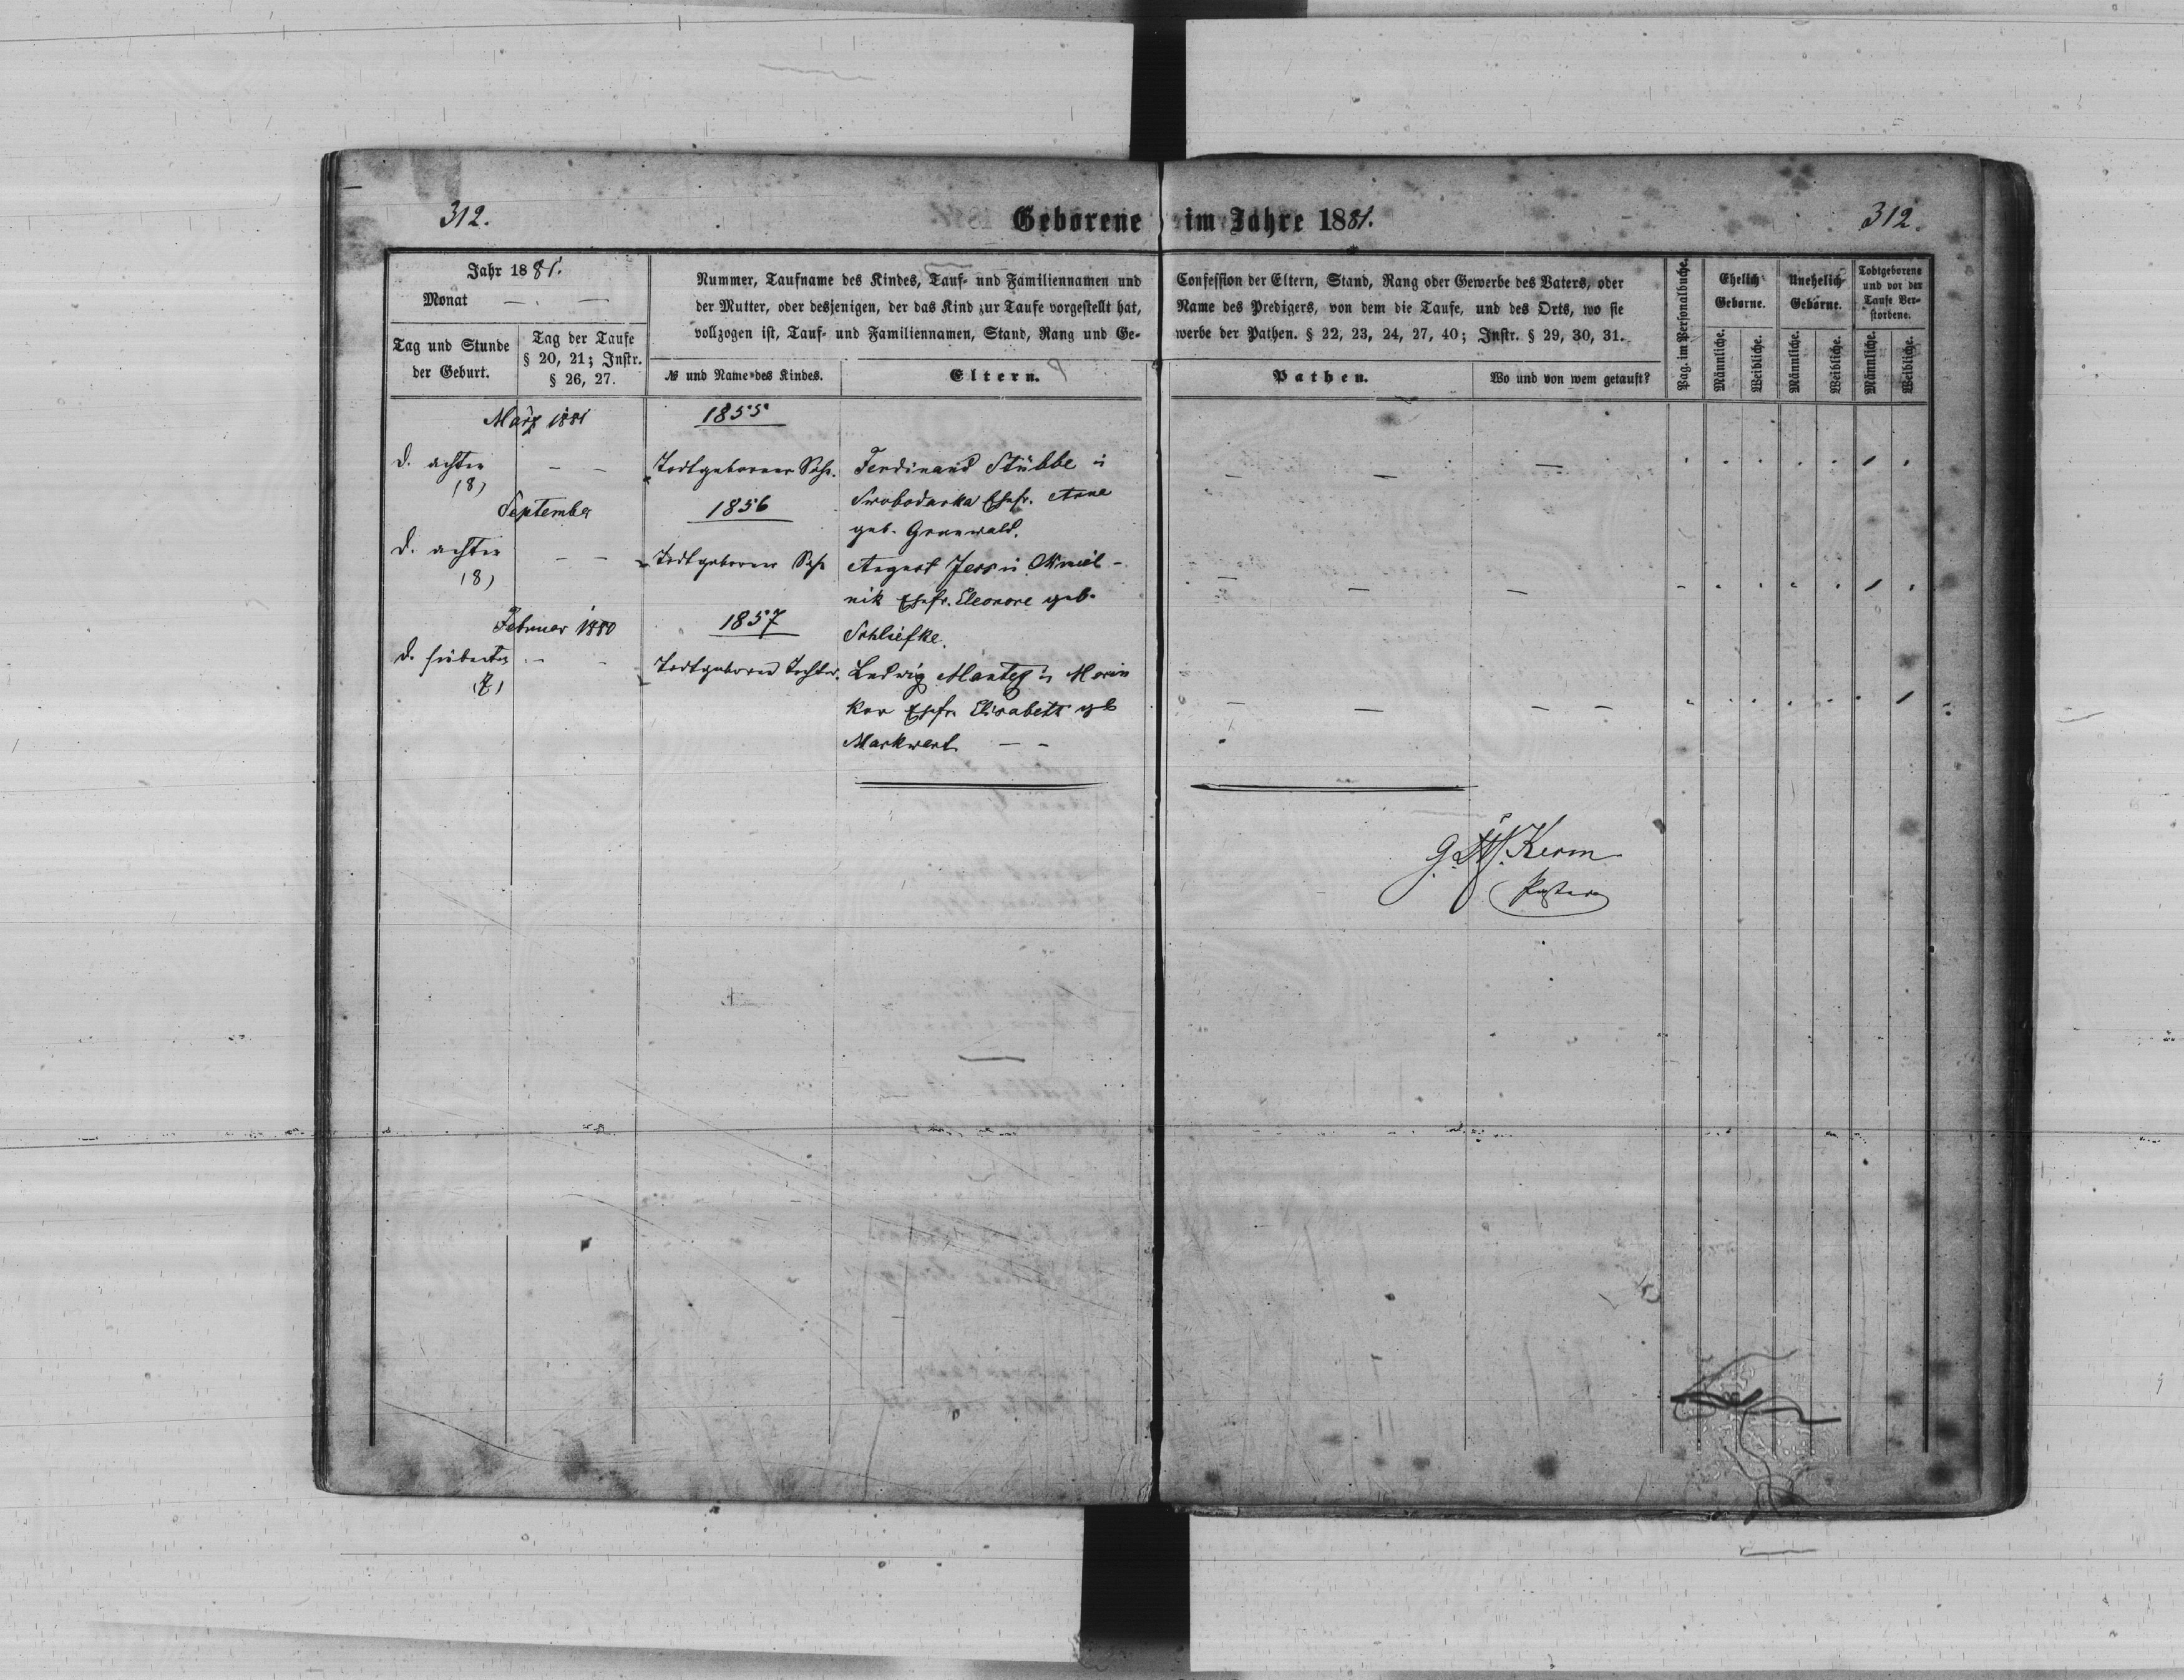 312.
Geborene im Jahre 1881.
312.
Jahr 1881.
Monat — . —
Tag und Stunde
der Geburt.
Tag der Taufe
§ 20, 21; Instr.
§ 26, 27.
Nummer, Taufname des Kindes, Tauf- und Familiennamen und
der Mutter, oder desjenigen, der das Kind zur Taufe vorgestellt hat,
vollzogen ist, Tauf- und Familiennamen, Stand, Rang und Ge-
№ und Name des Kindes.
Eltern.
Confession der Eltern, Stand, Rang oder Gewerbe des Vaters, oder
Name des Predigers, von dem die Taufe, und des Orts, wo sie
werbe der Pathen. § 22, 23, 24, 27, 40; Instr. § 29, 30, 31.
Pathen.
Wo und von wem getauft?
Pag. im Personalbuche.
Ehelich
Geborne.
Unehelich
Geborne.
Todtgeborene
und vor der
Taufe Ver-
storbene.
Männliche.
Weibliche.
Männliche.
Weibliche.
Männliche.
Weibliche.
März 1881
1855
d. achten
(8)
— —
Todtgeborner Sohn.
Ferdinand Stübbe in
Swobodarka Ehefr. Anna
geb. Grunwald.
September
1856
d. achten
(8)
— —
Todtgeborner Sohn
August Jess in Chmiel-
nik Ehefr. Eleonore geb.
Schliefke.
Februar 1880
1857
d. siebenten
(7)
— —
Todtgeborne Tochter.
Ludwig Mantey in
Ehefr. Elisabeth geb
Markwart — —
Kerm
Pastor